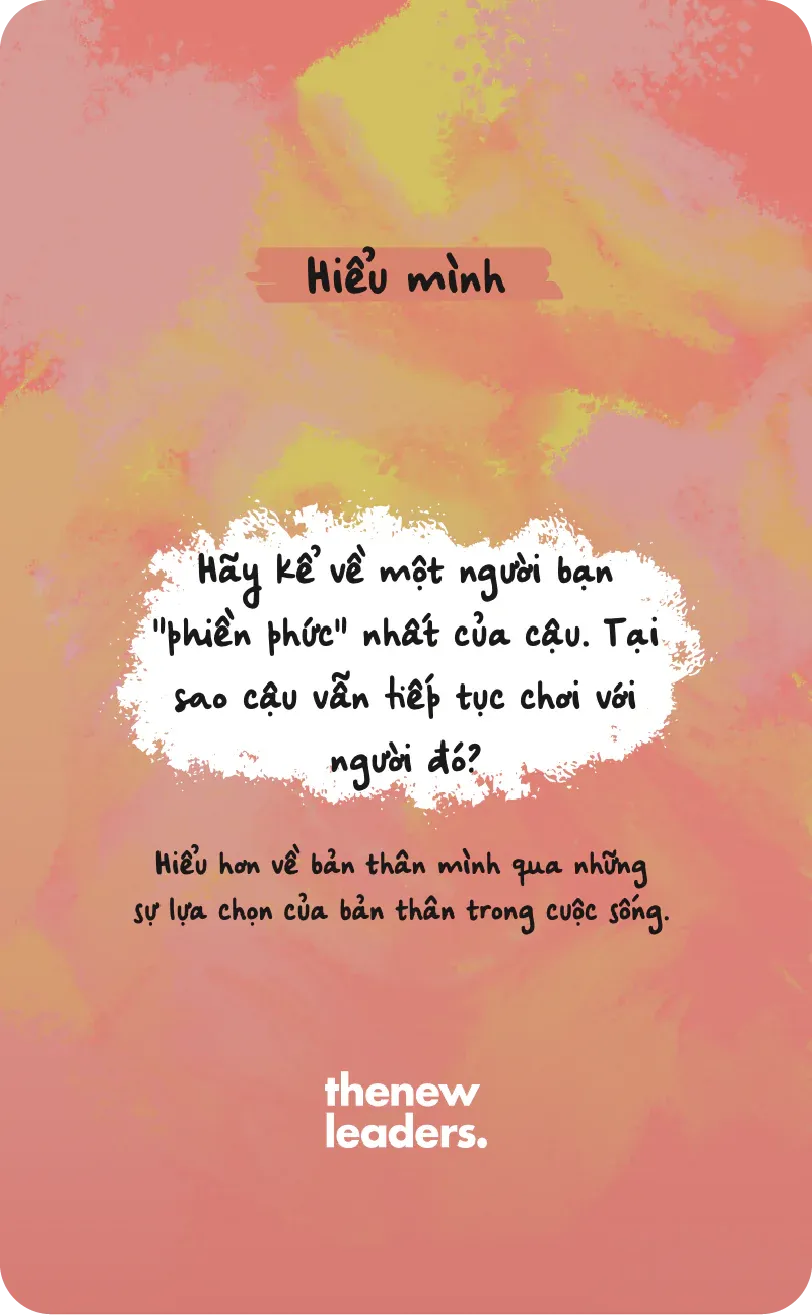 Hiểu mình
Hãy kể về một người bạn
"phiền phức" nhất của cậu. Tại
sao cậu vẫn tiếp tục chơi với
người đó?
Hiểu hơn về bản thân mình qua những
sự lựa chọn của bản thân trong cuộc sống.
thenew
leaders.